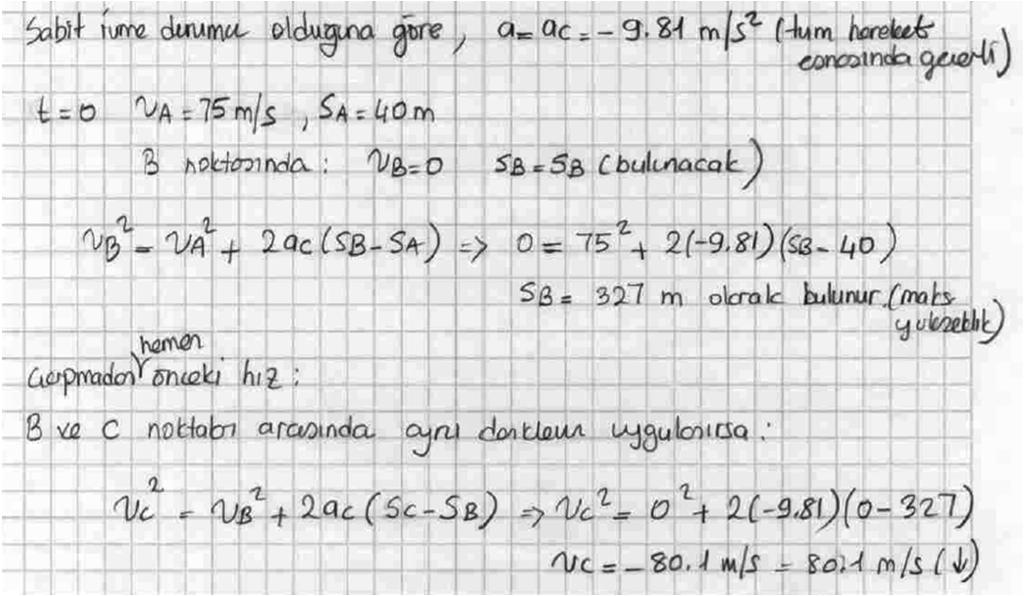 Sabit ivme durumu olduguna göre, a = ac = - 9.81 m/s² (tum hareket
esnasında gecerli)
t=0 vA = 75 m/s , SA = 40 m
B noktasında : vB=0 SB = SB (bulunacak)
vB² = vA² + 2ac (SB - SA) => 0 = 75² + 2(-9.81) (SB - 40)
SB = 327 m olarak bulunur. (maks
yukseklik)
hemen
Carpmadan önceki hız :
B ve C noktaları arasında aynı denklem uygulanırsa :
vc² = vB² + 2ac (Sc - SB) => vc² = 0² + 2(-9.81) (0 - 327)
vc = - 80.1 m/s = 80.1 m/s (↓)